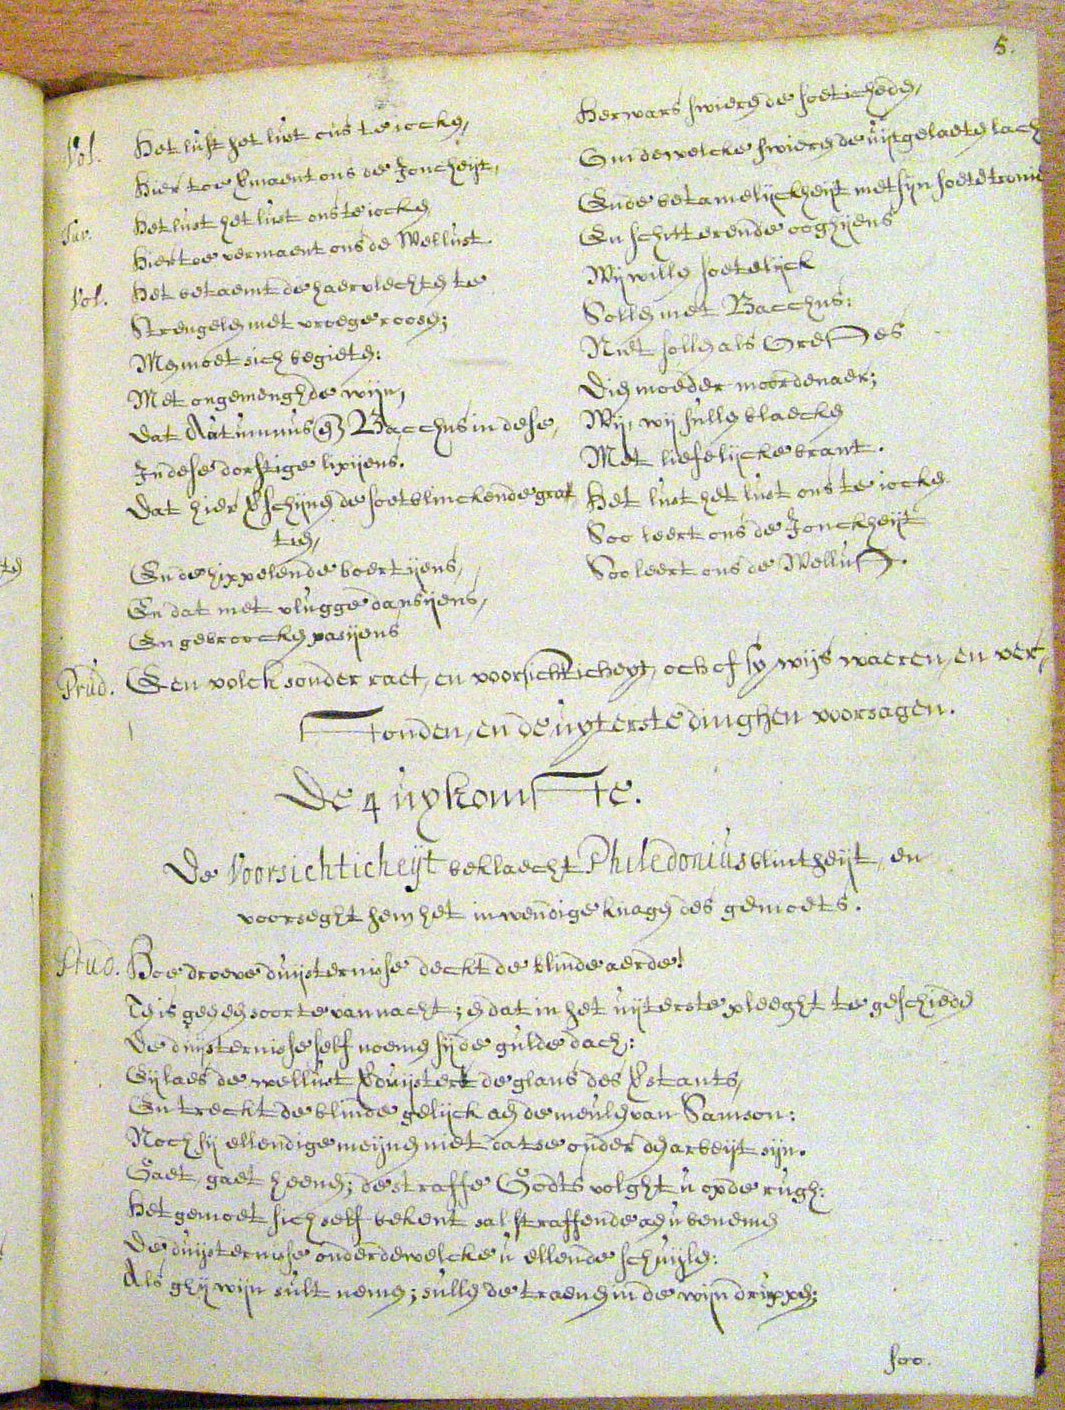 5.
Vol. Het lust het lust ons te iocken,
Hier toe vmaent ons de Joncheijt,
Juv. Het lust het lust ons te iocken
Hier toe vermaent ons de Wellust.
Vol. Het betaemt de haervlechten te
Strengelen met vroege roosen;
Men moet sich begieten:
Met ongemenghde wijn,
Dat Autumnus en Bacchus in dese,
In dese dorstige lipijens.
Dat hier vschijnen de soet blinckende grat
tien,
En de hippelende boertijens,
En dat met vlugge dansijens,
En gebroocken pasijens
Herwars swieren de soeticheden,
Om dewelcke swieren de uijtgelaeten lach
Ende betamelijckheijt met sijn soete
En schitterende ooghijens
Wij willen soetelijck
Sollen met Bacchus:
Niet sollen als Orestes
Dien moeder moordenaer;
Wij, wij sullen blaecken
Met liefelijcke brant.
Het lust het lust ons te iocken
Soo leert ons de Jonckheijt
Soo leert ons de Wellust.
Prud. Een volck sonder raet, en voorsichticheyt, och of sy wijs waeren, en ver,
stonden, en de uyterste dinghen voorsagen.
De 4 uykomste.
De Voorsichticheijt beklaecht Philedonius blintheijt, en
voorseght hem het inwendige knagen des gemoets.
Hoe droeve duijsternisse deckt de blinde aerde!
This geen en soorte van nacht; en dat in het uijterste pleeght te geschieden
De duijsternisse self noemen sij de gulde dach:
Eijlaes de wellust vduijstert de glans des vstants,
En treckt de blinde gelijck aen de meulen van Samson:
Noch sij ellendige meijnen niet datse onder den arbeijt sijn.
Gaet, gaet heenen; de straffe Godts volght u op de rugh:
Het gemoet sich self bekent sal straffende aen u benemen
De duijsternisse onder dewelcke u ellende schuijlen:
Als ghij wijn sult nemen; sullen de traenen in de wijn druppen;
soo.